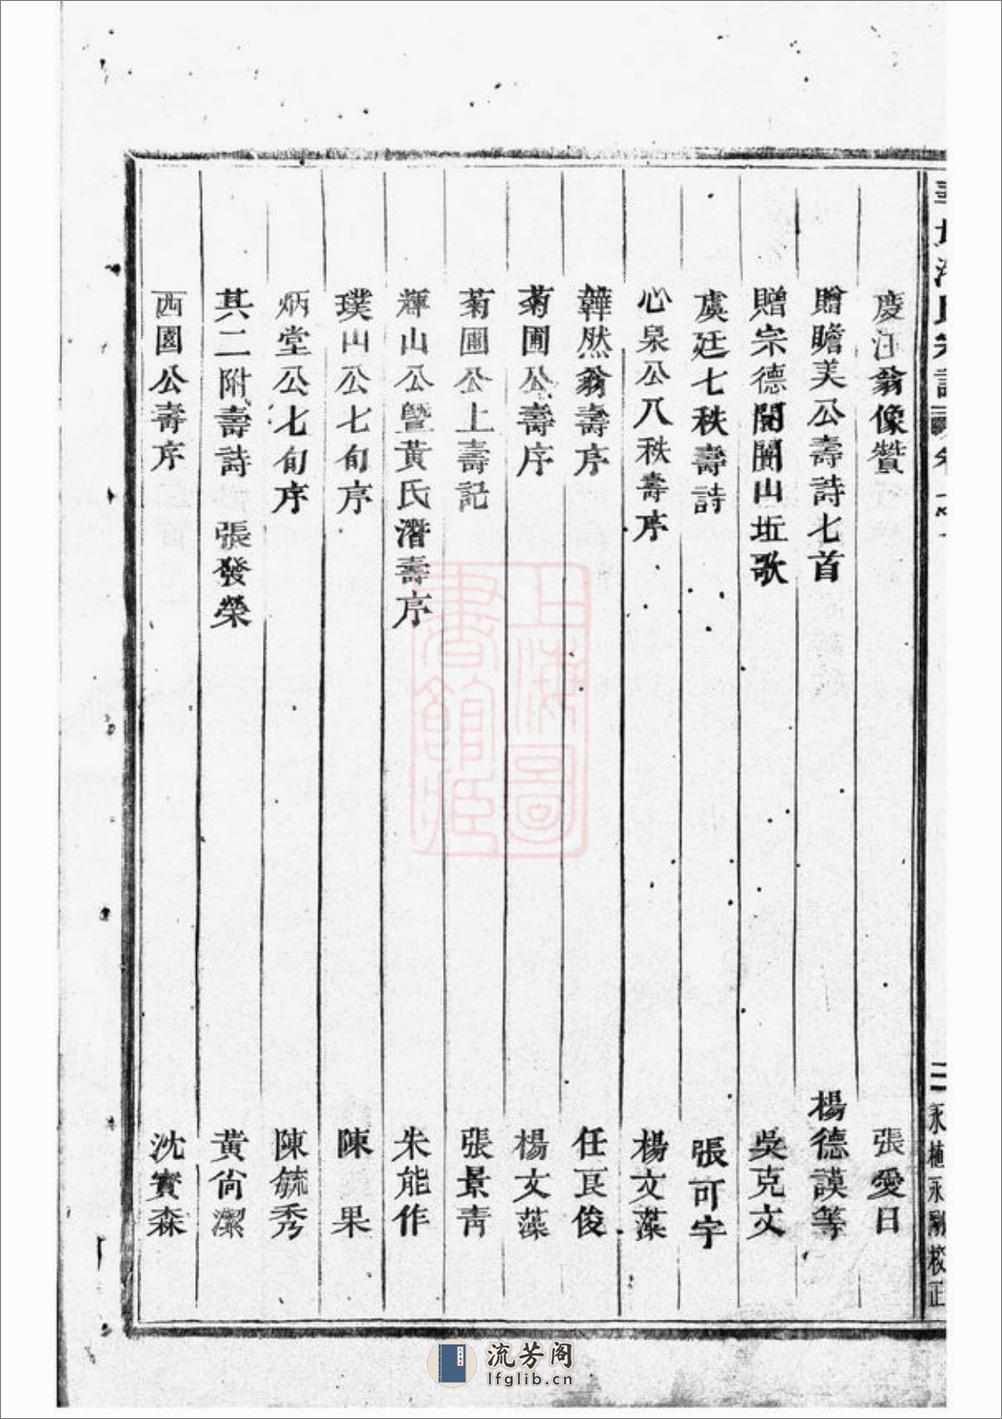 慶汪翁像贊 張愛日
贈瞻美公壽詩七首 楊德謨等
贈宗德開闢山坵歌 吳克文
虞廷七秩壽詩 張可宇
心泉公八秩壽序 楊文藻
韡然翁壽序 任艮俊
菊圃公壽序 楊文藻
菊圃公上壽記 張景青
輝山公暨黃氏潛壽序 朱能作
璞山公七旬序 陳果
炳堂公七旬序 陳毓秀
其二附壽詩 張發榮 黃尙潔
西園公壽序 沈實森
永植永剛校正
上海圖書館藏
流芳阁
lfglib.cn